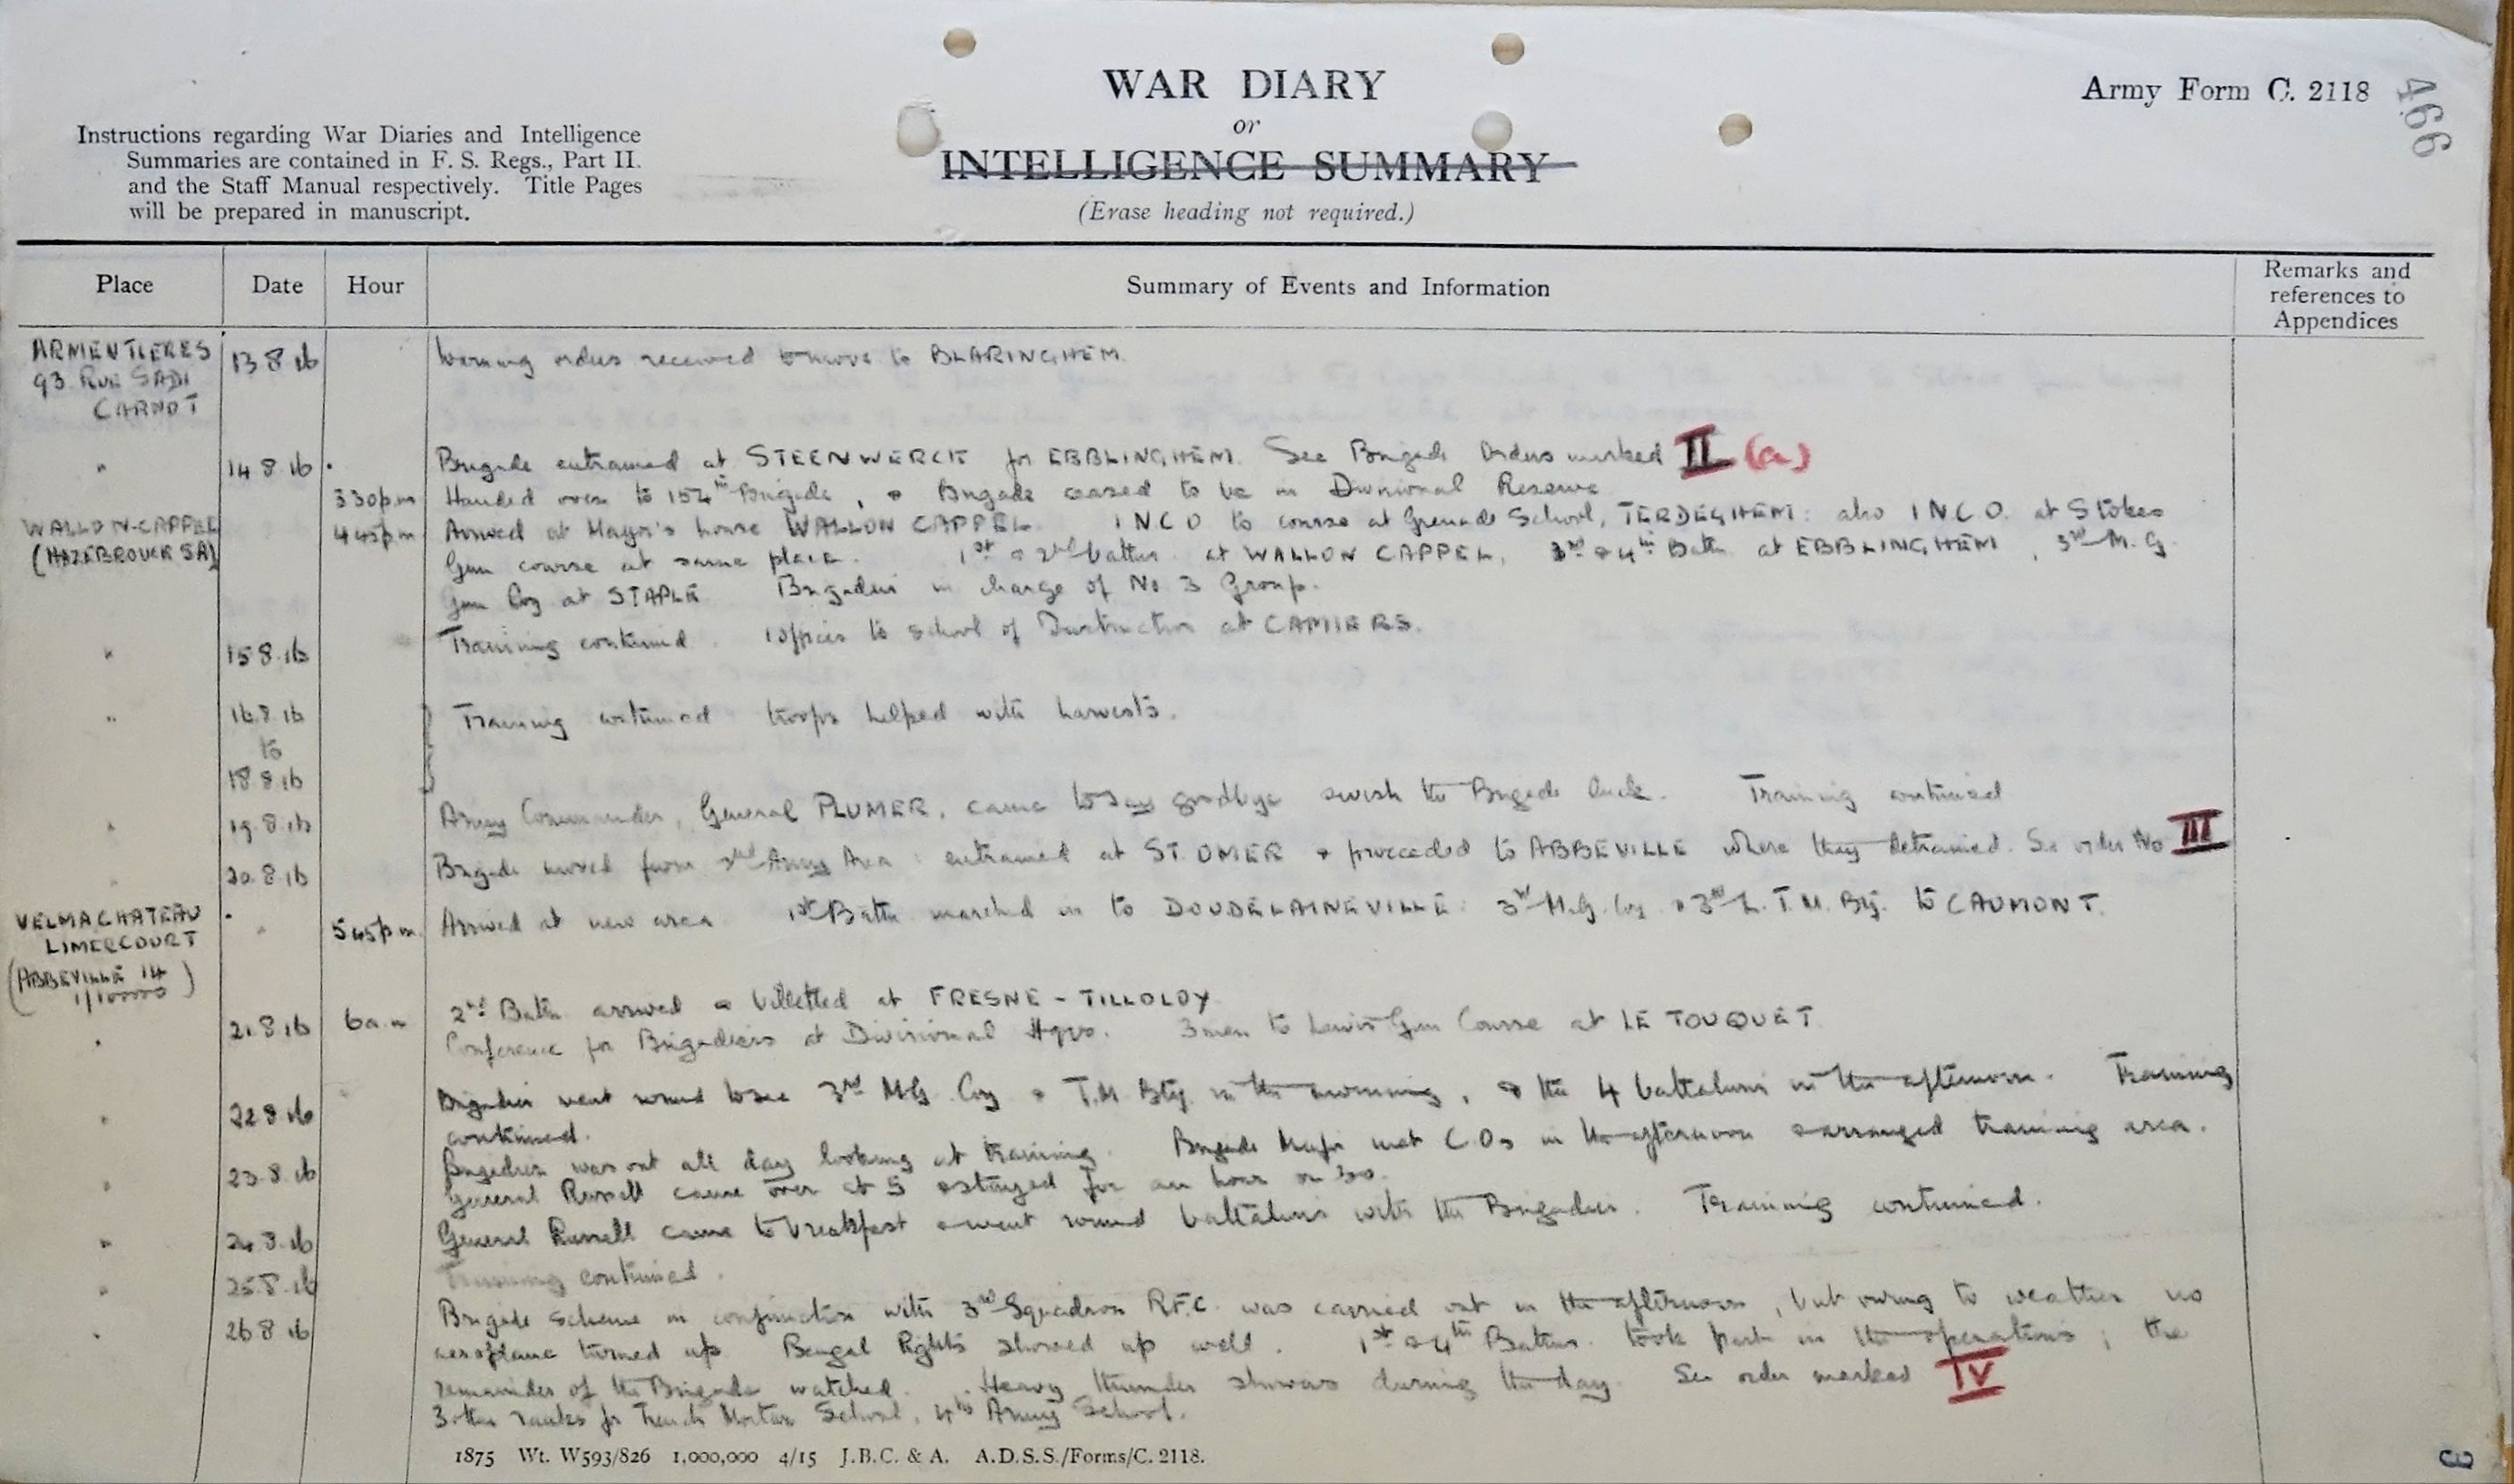 WAR DIARY
or
INTELLIGENCE SUMMARY
(Erase heading not required.)
Army Form C. 2118
466
Instructions regarding War Diaries and Intelligence
Summaries are contained in F. S. Regs., Part II.
and the Staff Manual respectively. Title Pages
will be prepared in manuscript.
Place Date Hour Summary of Events and Information Remarks and references to Appendices
ARMENTIERES 13 8 16 Warning orders received to move to BLARINGHEM.
93 RUE SADI
CARNOT
" 14 8 16 Brigade entrained at STEENWERCK for EBBLINGHEM. See Brigade Orders marked II (a)
3 30 p m Handed over to 154th Brigade, & Brigade ceased to be in Divisional Reserve
WALLON-CAPPEL 4 45 p m Arrived at Mayor's house WALLON CAPPEL 1 N C O to course at Grenade School, TERDEGHEM: also 1 N.C.O. at Stokes
(HAZEBROUCK 5A) Gun course at same place. 1st & 2nd battns at WALLON CAPPEL, 3rd & 4th Battn at EBBLINGHEM, 3rd M. G.
Gun Coy at STAPLE Brigadier in charge of No 3 Group.
" 15 8 16 Training continued. 1 Officer to School of Instruction at CAMIERS.
" 16.8 16 Training continued troops helped with harvests.
to
18 8 16
" 19.8.16 Army Commander, General PLUMER, came to say goodbye & wish the Brigade luck. Training continued
" 20.8.16 Brigade moved from 2nd Army Area: entrained at ST. OMER & proceeded to ABBEVILLE where they detrained. See order No III
VELMACHATEAU " 5 45 p m. Arrived at new area 1st Battn marched in to DOUDELAINEVILLE: 3rd M.G. Coy & 3rd L.T.M. Bty. to CAUMONT.
LIMERCOURT
(ABBEVILLE 14
1/100000)
" 21.8 16 6 a.m 2nd Battn arrived & billetted at FRESNE - TILLOLOY
Conference for Brigadiers at Divisional Hqrs. 3 men to Lewis Gun Course at LE TOUQUET
" 22 8 16 Brigadier went round to see 3rd M.G. Coy & T.M. Bty. in the morning, & the 4 battalions in the afternoon. Training
continued.
" 23.8.16 Brigadier was out all day looking at training. Brigade Major met C.Os in the afternoon & arranged training area.
General Russell came over at 5 & stayed for an hour or so.
" 24.8.16 General Russell came to breakfast & went round battalions with the Brigadier. Training continued.
" 25.8.16 Training continued.
" 26 8 16 Brigade scheme in conjunction with 3rd Squadron R.F.C. was carried out in the afternoon, but owing to weather no
aeroplane turned up Bengal Lights showed up well. 1st & 4th Battns. took part in the operations; the
remainder of the Brigade watched. Heavy thunder showers during the day. See order marked IV
3 other ranks for Trench Mortar School, 4th Army School.
1875 Wt. W593/826 1,000,000 4/15 J.B.C. & A. A.D.S.S./Forms/C. 2118.
3